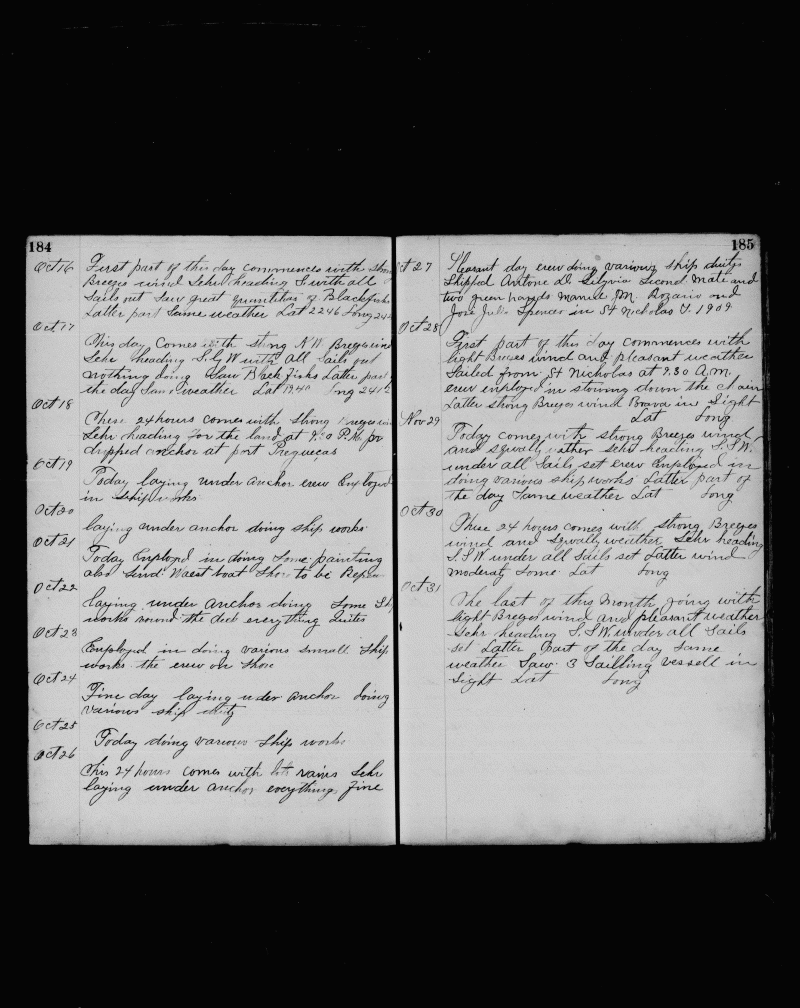 184
Oct 16 First part of this day commences with strong
Breezes wind Schr heading S with all
Sails out Saw great quantities of Blackfish
Latter part Same weather Lat 22 46 Long 24
Oct 17
This day Comes with strong N.W Breezes wind
Schr heading S. & W with all Sails out
nothing doing Saw Black Fishs Latter part
the day Same weather Lat 19.40 Long 24
Oct 18
These 24 hours comes with Strong Breezes
Schr heading for the land at 9.30 P.M.
dropped anchor at port Preguecas
Oct 19
Today laying under Anchor crew Employed
in Ship works
Oct 20
laying under anchor doing ship works
Oct 21
Today Employd in doing Some painting
also Send Waest boat Shore to be
Oct 22
laying under Anchor doing Some
works round the deck everything Quites
Oct 23
Employed in doing various small Ship
works the crew on Shore
Oct 24
Fine day laying under Anchor doing
various ship duty
Oct 25
Today doing various Ship works
Oct 26
This 24 hours comes with rains Schr
laying under anchor everything fine
185
Oct 27 Pleasant day crew doing various ship duties
Shipped Antone D. Sylvia Second Mate and
two green hands Manuel M. Rozario and
Jose Julio Spencer in St Nicholas 1909
Oct 28
First part of this day commences with
light Breezes wind and pleasant weather
Sailed from St Nicholas at 9.30 A.M.
crew employed in stowing down the Chain
Latter strong Breezes wind Brava in Sight
Lat Long
Nov 29
Today comes with strong Breezes wind
and squally wether Schr heading S.S.W.
under all Sails set crew Employed in
doing various ship works Latter part of
the day Same weather Lat Long
Oct 30
These 24 hours comes with strong Breezes
wind and Squally weather Schr heading
S.S.W under all Sails set Latter wind
moderatly Some Lat Long
Oct 31
The last of this month going with
light Breezes wind and pleasant weather
Schr heading S.S.W. under all Sails
set Latter Part of the day Same
weather Saw 3 Sailling vessell in
Sight Lat Long